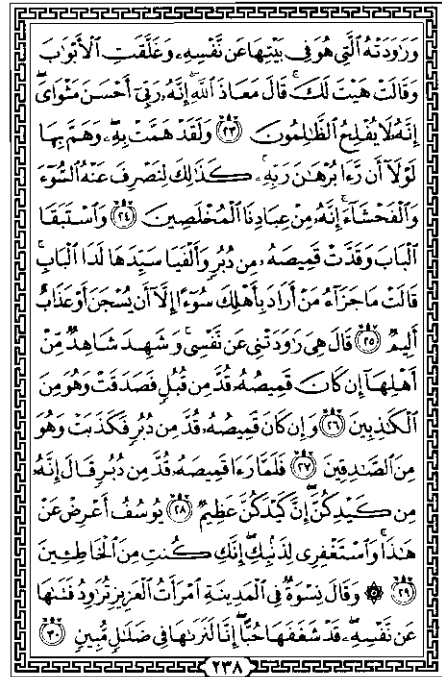 وَرَٰوَدَتْهُ ٱلَّتِى هُوَ فِى بَيْتِهَا عَن نَّفْسِهِۦ وَغَلَّقَتِ ٱلْأَبْوَٰبَ
وَقَالَتْ هَيْتَ لَكَ ۚ قَالَ مَعَاذَ ٱللَّهِ ۖ إِنَّهُۥ رَبِّىٓ أَحْسَنَ مَثْوَاىَ ۖ
إِنَّهُۥ لَا يُفْلِحُ ٱلظَّٰلِمُونَ ٢٣ وَلَقَدْ هَمَّتْ بِهِۦ ۖ وَهَمَّ بِهَا
لَوْلَآ أَن رَّءَا بُرْهَٰنَ رَبِّهِۦ ۚ كَذَٰلِكَ لِنَصْرِفَ عَنْهُ ٱلسُّوٓءَ
وَٱلْفَحْشَآءَ ۚ إِنَّهُۥ مِنْ عِبَادِنَا ٱلْمُخْلَصِينَ ٢٤ وَٱسْتَبَقَا
ٱلْبَابَ وَقَدَّتْ قَمِيصَهُۥ مِن دُبُرٍ وَأَلْفَيَا سَيِّدَهَا لَدَا ٱلْبَابِ ۚ
قَالَتْ مَا جَزَآءُ مَنْ أَرَادَ بِأَهْلِكَ سُوٓءًا إِلَّآ أَن يُسْجَنَ أَوْ عَذَابٌ
أَلِيمٌ ٢٥ قَالَ هِىَ رَٰوَدَتْنِى عَن نَّفْسِى ۚ وَشَهِدَ شَاهِدٌ مِّنْ
أَهْلِهَآ إِن كَانَ قَمِيصُهُۥ قُدَّ مِن قُبُلٍ فَصَدَقَتْ وَهُوَ مِنَ
ٱلْكَٰذِبِينَ ٢٦ وَإِن كَانَ قَمِيصُهُۥ قُدَّ مِن دُبُرٍ فَكَذَبَتْ وَهُوَ
مِنَ ٱلصَّٰدِقِينَ ٢٧ فَلَمَّا رَءَا قَمِيصَهُۥ قُدَّ مِن دُبُرٍ قَالَ إِنَّهُۥ
مِن كَيْدِكُنَّ ۖ إِنَّ كَيْدَكُنَّ عَظِيمٌ ٢٨ يُوسُفُ أَعْرِضْ عَنْ
هَٰذَا ۚ وَٱسْتَغْفِرِى لِذَنۢبِكِ ۖ إِنَّكِ كُنتِ مِنَ ٱلْخَاطِـِٔينَ
٢٩ ۞ وَقَالَ نِسْوَةٌ فِى ٱلْمَدِينَةِ ٱمْرَأَتُ ٱلْعَزِيزِ تُرَٰوِدُ فَتَىٰهَا
عَن نَّفْسِهِۦ ۖ قَدْ شَغَفَهَا حُبًّا ۖ إِنَّا لَنَرَىٰهَا فِى ضَلَٰلٍ مُّبِينٍ ٣٠
٢٣٨